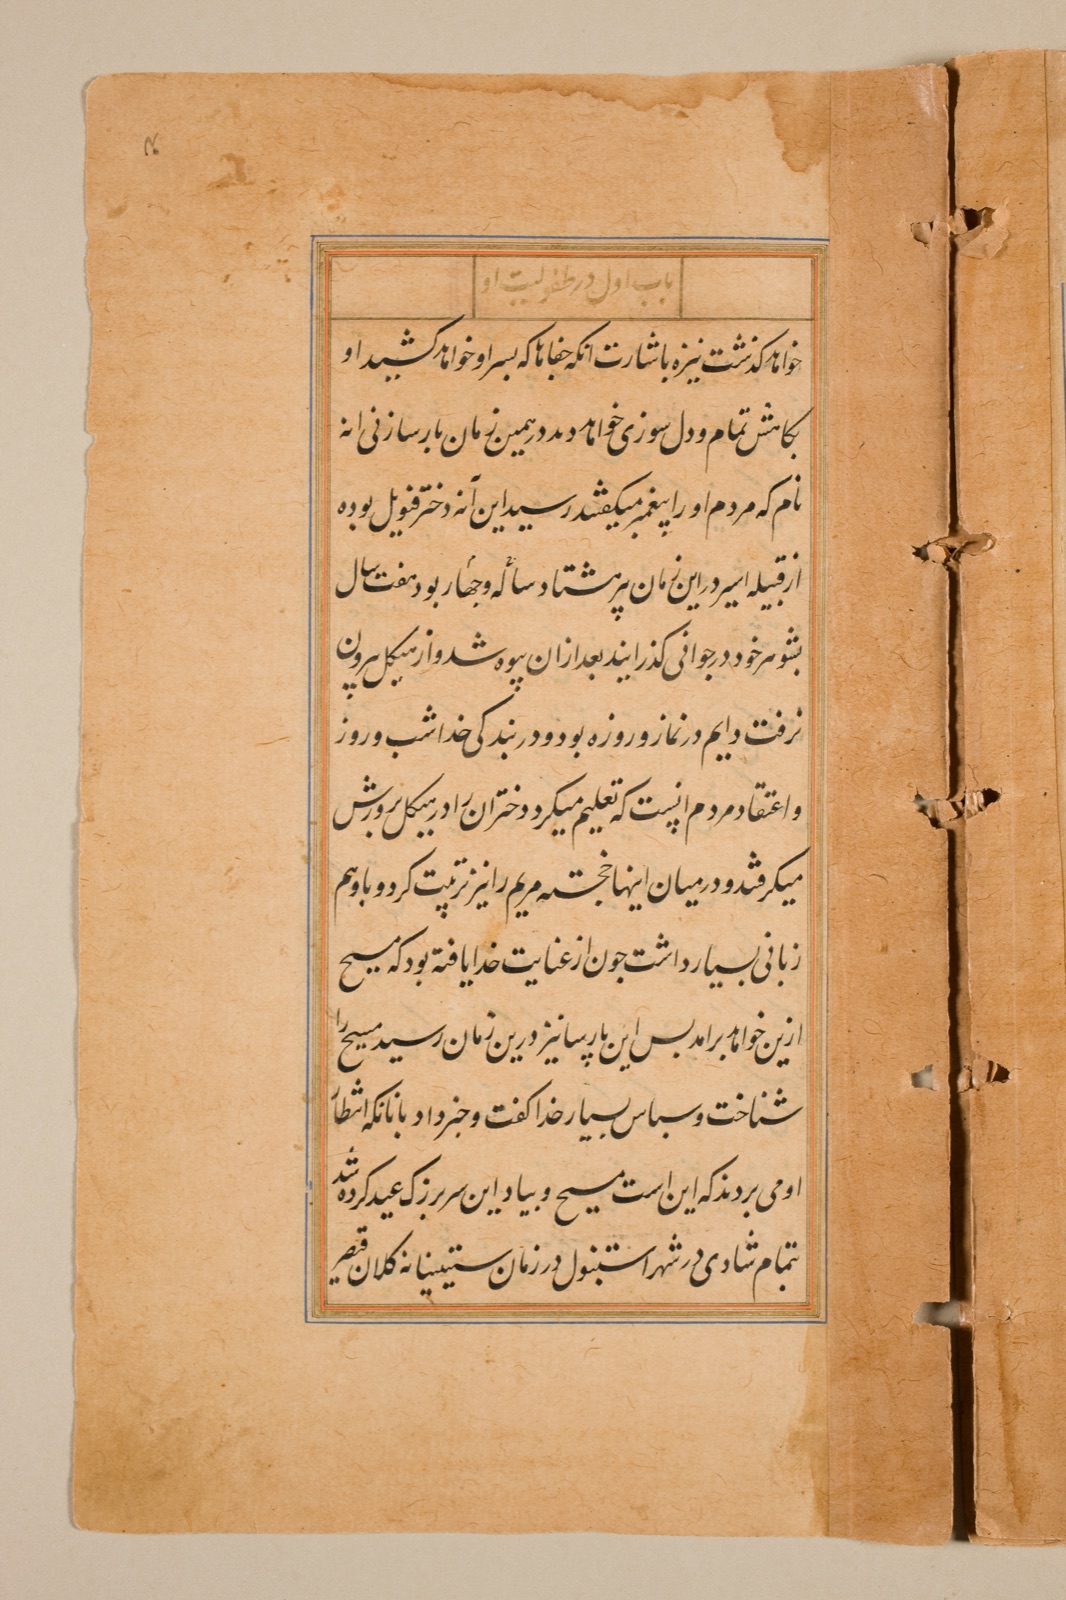 باب اول در طفولیت او
خواهد کذشت نیزه باشارت انکه جفاها که بسر او خواهد کشید او
بکاهش تمام و دل سوزی خواهد دید در همین زمان پارسا زنی انه
نام که مردم او را پیغمبر میکفتند رسید این آنه دختر فنویل بوده
از قبیله اسیر در این زمان پیر هشتاد ساله و چهار بود هفت سال
بشوهر خود در جوانی کذرانید بعد از ان بیوه شد و از هیکل بیرون
نرفت دایم در نماز و روزه بود و در بندکی خدا شب و روز
و اعتقاد مردم اینست که تعلیم میکرد دختران را در هیکل پرورش
میکرفتند و در میان اینها خجسته مریم را نیز تربیت کرد و باو هم
زبانی بسیار داشت جون از عنایت خدا یافته بود که مسیح
ازین خواهد برامد بس این پارسا نیز درین زمان رسید مسیح را
شناخت و سباس بسیار خدا کفت و خبر داد بانانکه انتظار
او می بردند که این است مسیح و بیاد این سر بزرک عید کرده شد
بتمام شادی در شهر استنبول در زمان کلان قیصر